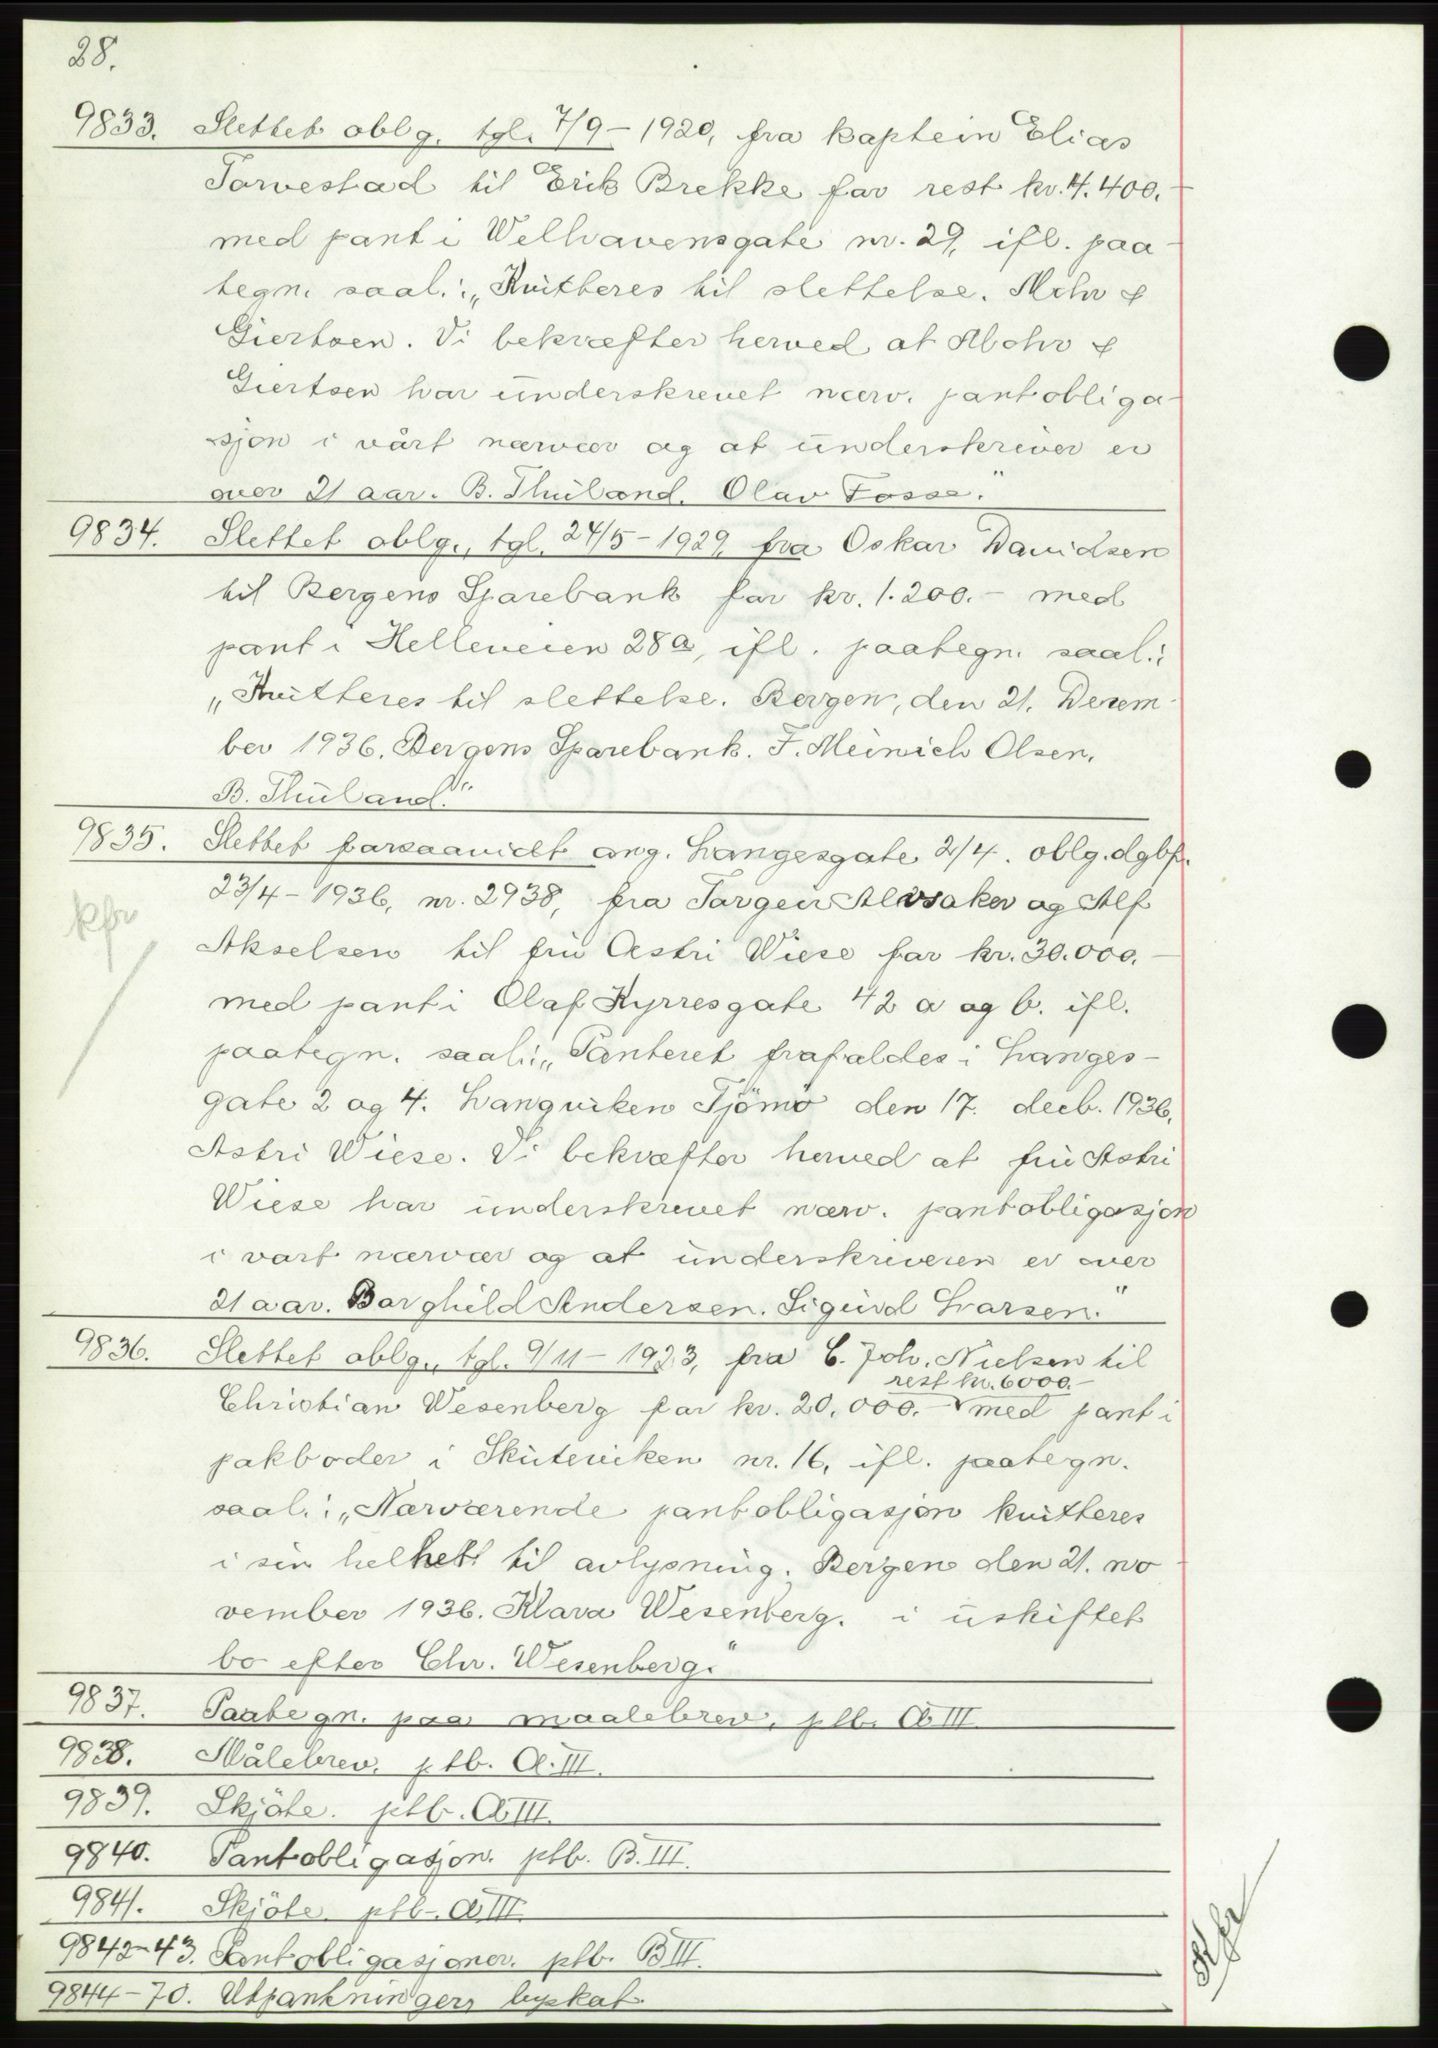 28.
9833. Slettet oblg. tgl. 7/9 - 1920, fra kaptein Elias
Torvestad til Erik Brekke for rest kr. 4.400.-
med pant i Welhavensgate nr. 29, ifl. paa-
tegn. saal.: „Kvitteres til slettelse. Mohr &
Giertsen. Vi bekræfter herved at Mohr &
Giertsen har underskrevet nærv. pantobliga-
sjon i vårt nærvær og at underskriver er
over 21 aar. B. Thuland. Olav Fosse."
9834. Slettet oblg., tgl. 24/5 - 1929, fra Oskar Davidsen
til Bergens Sparebank for kr. 1.200.- med
pant i Helleveien 28a, ifl. paategn. saal.:
„Kvitteres til slettelse. Bergen, den 21. Desem-
ber 1936. Bergens Sparebank. F. Meinich Olsen.
B. Thuland."
9835. Slettet forsaavidt ang. Langesgate 2/4. oblg. dgbf.
23/4 - 1936, nr. 2938, fra Torgeir Alvsaker og Alf
kfr
Akselsen til fru Astri Wiese for kr. 30.000.-
med pant i Olaf Kyrresgate 42 a og b. ifl.
paategn. saal.: „Panteret frafaldes i Langes-
gate 2 og 4. Langviken Tjömö den 17. decb. 1936.
Astri Wiese. Vi bekræfter herved at fru Astri
Wiese har underskrevet nærv. pantobligasjon
i vart nærvær og at underskriveren er over
21 aar. Borghild Andersen. Sigurd Larsen."
9836. Slettet oblg., tgl. 9/11 - 1923, fra C. Joh. Nielsen til
rest kr. 6000.-
Christian Wesenberg for kr. 20.000.- med pant i
pakboder i Skuteviken nr. 16, ifl. paategn.
saal.: „Nærværende pantobligasjon kvitteres
i sin helhet til avlysning. Bergen den 21. no
vember 1936. Klara Wesenberg. i uskiftet
bo efter Chr. Wesenberg."
9837. Paategn. paa maalebrev, ptb. A III
9838. Målebrev. ptb. A. III.
9839. Skjöte. ptb. A III.
9840. Pantobligasjon. ptb. B. III.
9841. Skjöte. ptb. A III.
9842-43. Pantobligasjoner. ptb. B III.
9844-70. Utpantninger, byskat.
Kfr